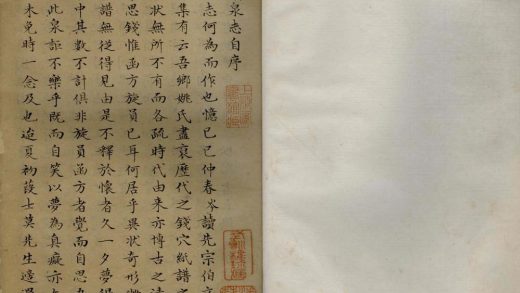 泉志自序
志何為而作也憶已巳仲春岑讀先宗伯文
集有云吾鄉姚氏盡裒歷代之錢穴紙譜之
狀無所不有而各疏時代由来亦博古之
思錢惟函方旋員已耳何居乎異狀奇形
譜無從得見由是不釋於懷者久一夕夢得
中其數不計俱非旋員函方者覺而自思
此泉詎不樂乎既而自笑以夢為真癡亦
未免時一念及也迨夏初葭士莫先生造